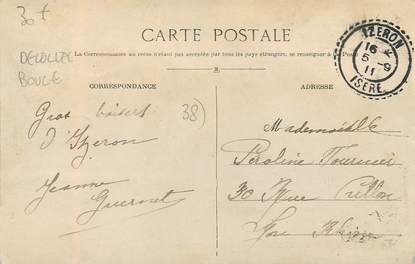 30f
DELOLIZE
BOULE
CARTE POSTALE
La Correspondance au recto n'est pas acceptée par tous les pays étrangers, se renseigner à la Poste
IZERON
16
5 -9
11
ISÈRE
CORRESPONDANCE
ADRESSE
Gros baisers
d'Izeron
Jeanne
Guernet
38)
Mademoiselle
Peroline Fournier
30 Rue Crillon
Lyon Rhône